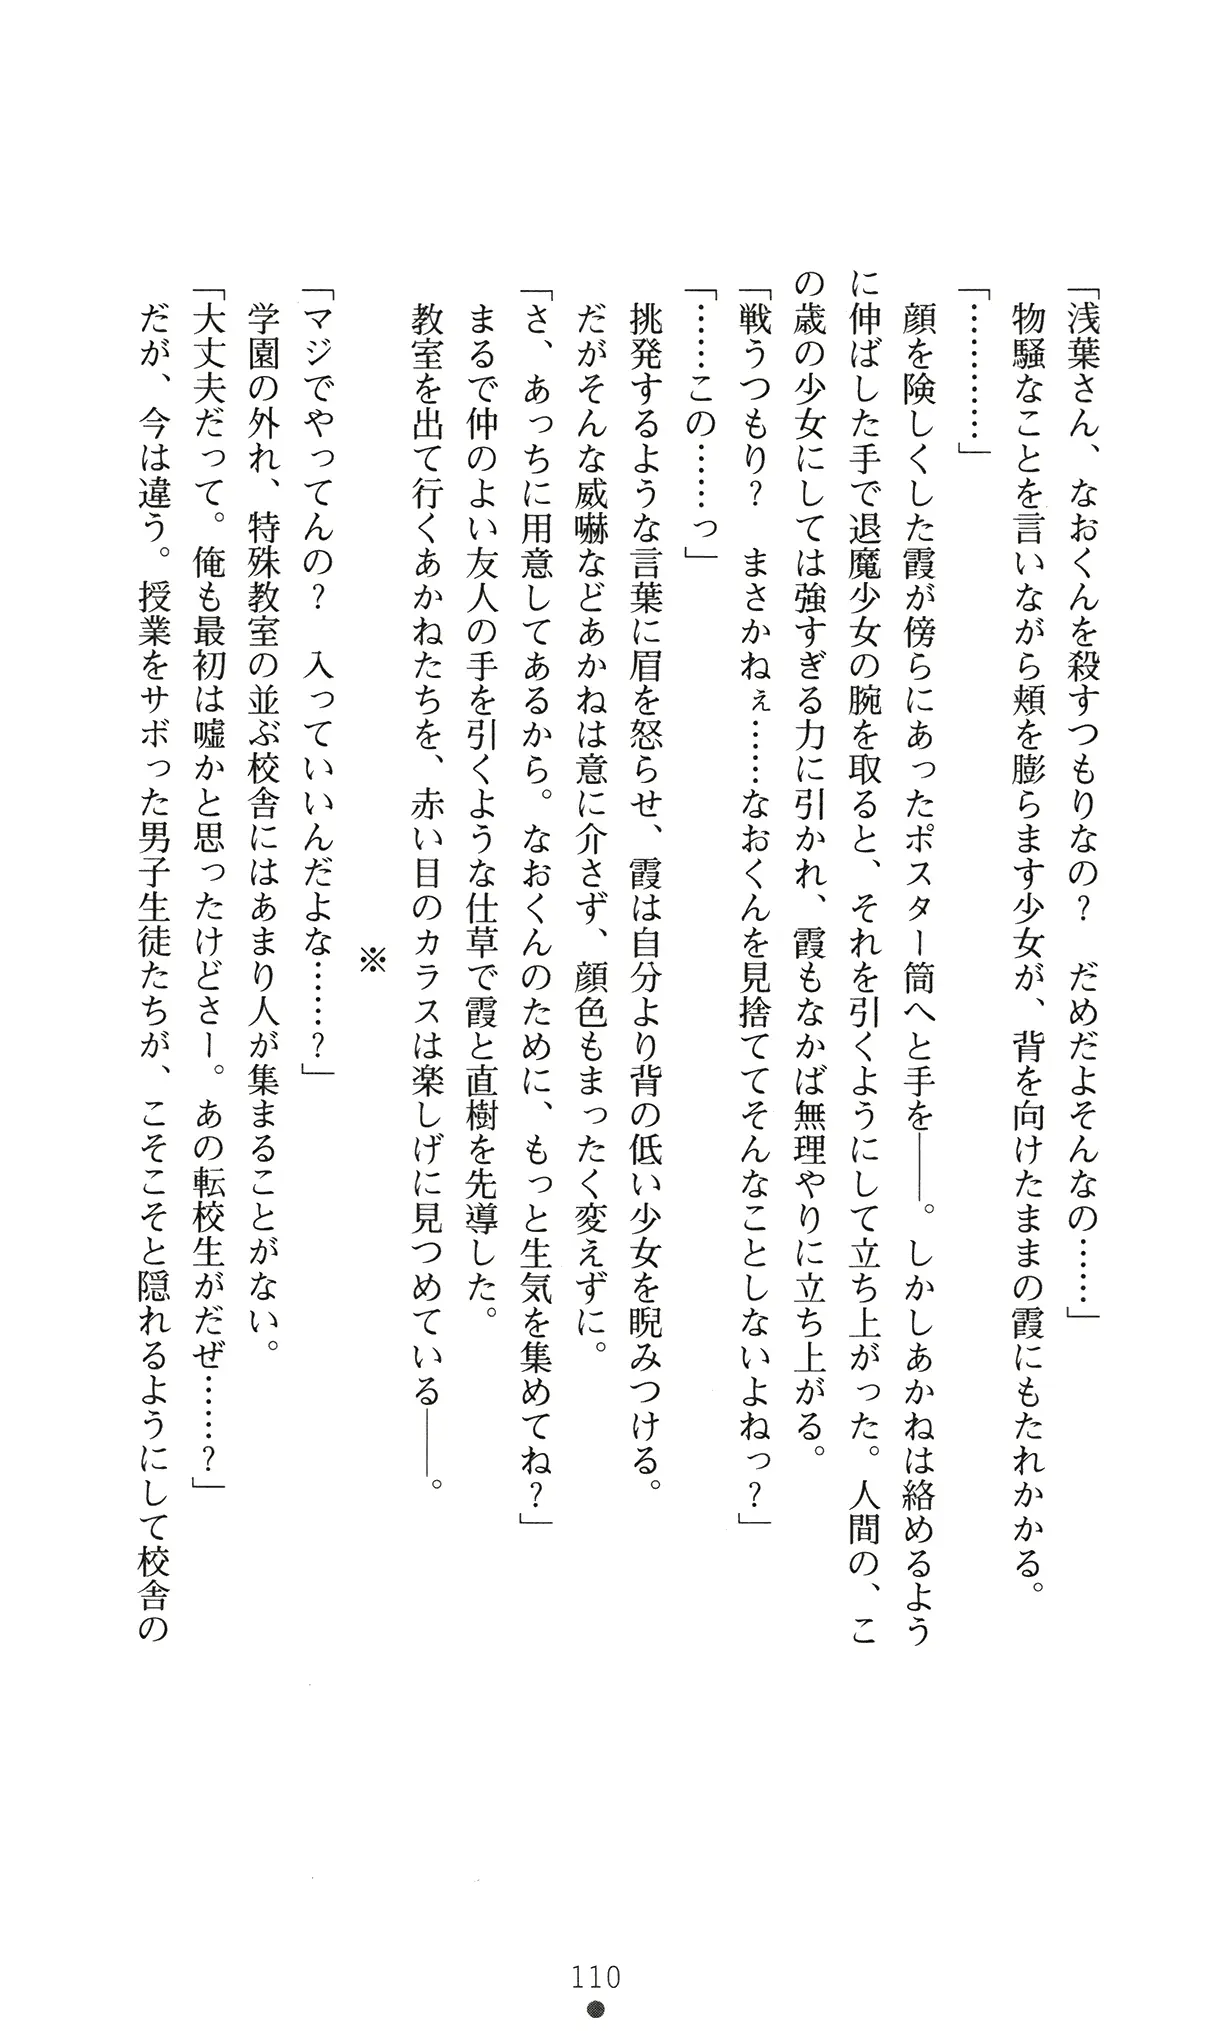 「浅葉さん、なおくんを殺すつもりなの？　だめだよそんなの……」
　物騒なことを言いながら頬を膨らます少女が、背を向けたままの霞にもたれかかる。
「…………」
　顔を険しくした霞が傍らにあったポスター筒へと手を――。しかしあかねは絡めるよう
に伸ばした手で退魔少女の腕を取ると、それを引くようにして立ち上がった。人間の、こ
の歳の少女にしては強すぎる力に引かれ、霞もなかば無理やりに立ち上がる。
「戦うつもり？　まさかねぇ……なおくんを見捨ててそんなことしないよねっ？」
「……この……っ」
　挑発するような言葉に眉を怒らせ、霞は自分より背の低い少女を睨みつける。
　だがそんな威嚇などあかねは意に介さず、顔色もまったく変えずに。
「さ、あっちに用意してあるから。なおくんのために、もっと生気を集めてね？」
　まるで仲のよい友人の手を引くような仕草で霞と直樹を先導した。
　教室を出て行くあかねたちを、赤い目のカラスは楽しげに見つめている――。
※
「マジでやってんの？　入っていいんだよな……？」
　学園の外れ、特殊教室の並ぶ校舎にはあまり人が集まることがない。
「大丈夫だって。俺も最初は嘘かと思ったけどさー。あの転校生がだぜ……？」
　だが、今は違う。授業をサボった男子生徒たちが、こそこそと隠れるようにして校舎の
110